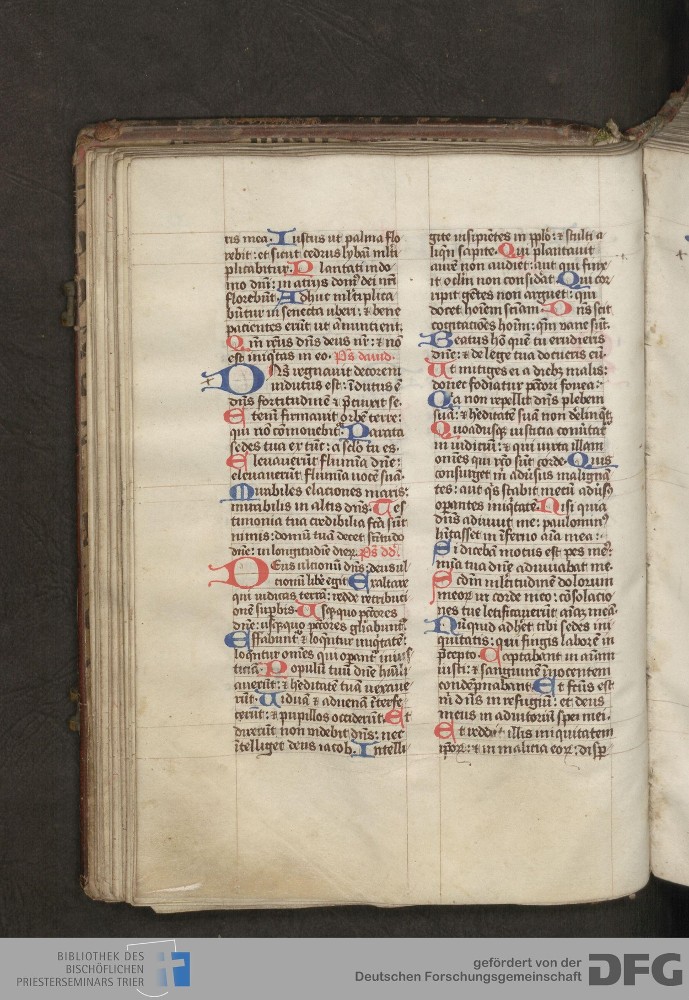 ris mea. Iustus ut palma flo
rebit: et sicut cedrus lybani mlti
plicabitur. Plantati in do
mo dni: in atriis dom9 dei nri
florebūt. Adhuc mltiplica
būtur in senecta uberi: ⁊ bene
pacientes erūt ut ānuntient.
Qm̄ rctus dns deus nr: ⁊ nō
est iniqtas in eo. Ps dauid.
Dns regnauit decorem
indutus est: īdutus ē
dns fortitudinē ⁊ p̄cinxit se.
Etenī firmauit orbē terre:
qui nō cōmouebit. Parata
sedes tua ex tūc: a sclo tu es.
Eleuauerūt flumina dne:
eleuauerūt flumina uocē suā.
Mirabiles elaciones maris:
mirabilis in altis dns. Tes
timonia tua credibilia fca sūt
nimis: domū tuā decet scitudo
dne: in longitudinē dierꝝ. Ps dd.
Deus ulcionū dns: deus ul
cionū libē egit. Exaltare
qui iudicas terrā: redde retribuci
onē supbis. Usqquo pctores
dne: usqquo pctores gliabunt.
Effabunt ⁊ loqntur iniqtatē:
loqntur omēs qui opant iniu
ticiā. Populū tuū dne hūili
auerūt: ⁊ heditatē tuā uexaue
rūt. Uiduā ⁊ aduenā īterfe
cerūt: ⁊ pupillos occiderūt. Et
dixerūt non uidebit dns: nec
ītelliget deus iacob. Intelli
gite insipiētes in pplo: ⁊ stulti a
liqn sapite. Qui plantauit
aurē non audiet: aut qui finx
it oclm non considat. Qui cor
ripit gētes non arguet: qui
docet hoīem sciam. Dns scit
cogitacōes hoim: qm̄ uane sūt.
Beatus hō quē tu erudieris
dne: ⁊ de lege tua docueris eū.
Ut mitiges ei a diebꝫ malis:
donec fodiatur pctori fouea.
Qa non repellit dns plebem
suā: ⁊ heditatē suā non delinqt.
Quoadusqꝫ iusticia conūtat
in iudiciū: ⁊ qui iuxta illam
omēs qui rcto sūt corde. Quis
consurget m̄ adūsus malignā
tes: aut qs stabit mecū adūs9
opantes iniqtatē. Nisi quia
dns adiuuit me: paulomin9
hitasset in īferno aīa mea.
Si dicebā motus est pes me9:
mīa tua dne adiuuabat me.
Scdm mltitudinē dolorum
meorꝝ in corde meo: cōsolacio
nes tue letificauerūt aīaꝫ meā.
Nūquid adhet tibi sedes ini
quitatis: qui fingis laborē in
pcepto. Captabant in aīam
iusti: ⁊ sanguinē īnocentem
condēpnabant. Et fcus est
m̄ dns in refugiū: et deus
meus in adiutoriū spei mei.
Et reddet illis iniquitatem
ipoꝝ: ⁊ in malicia eoꝝ: disp
BIBLIOTHEK DES
BISCHÖFLICHEN
PRIESTERSEMINARS TRIER
gefördert von der
Deutschen Forschungsgemeinschaft
DFG